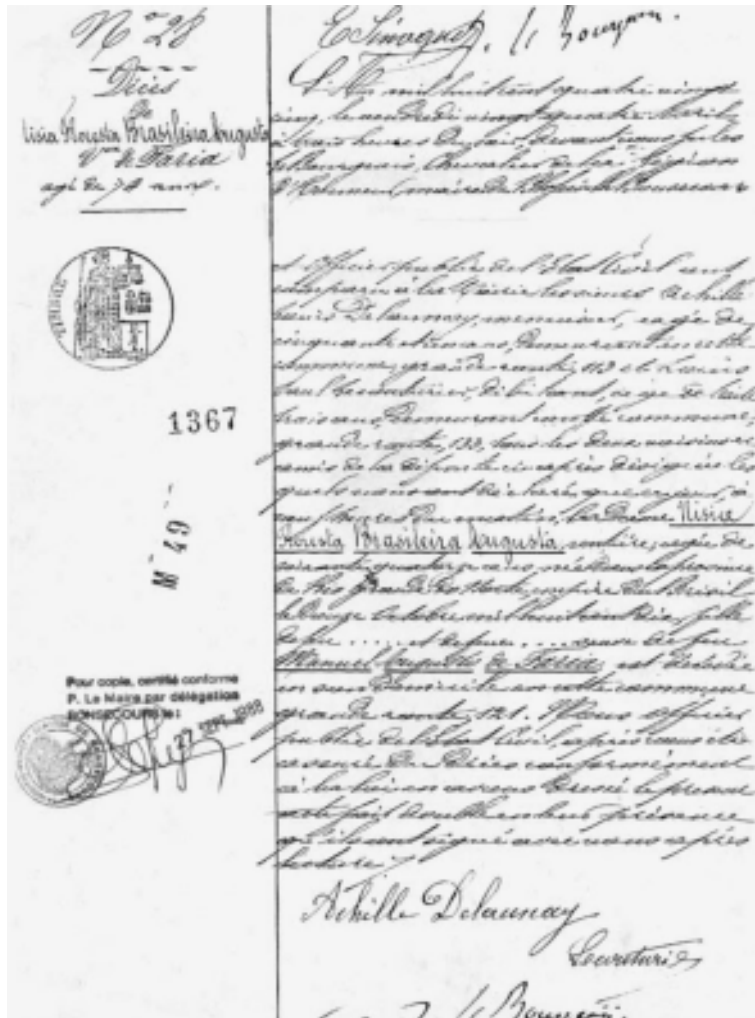 Nº 28
Décès
de
Nisia Floresta Brasileira Augusta
Vve de Faria
agée de 74 ans.
1367
M 49
Pour copie, certifié conforme
P. Le Maire par délégation
BONSECOURS le :
1988
L'An mil huit cent quatre vingt
cinq, le vendredi vingt quatre Avril,
à trois heures du soir, devant nous
Bourgeois, Chevalier de la Légion
d'Honneur, maire de
et officier public de l'Etat Civil sont
comparus à la Mairie les sieurs Achille
Louis Delaunay, menuisier, agé de
cinquante et un ans, demeurant en cette
commune, grande route, 113 et Louis
Paul Lecouturier, débitant, agé de trente
trois ans, demeurant en cette commune,
grande route, 133, tous les deux voisins et
amis de la défunte ci-après désignée les
quels nous ont déclaré que ce jour, à
heures du matin, la Dame Nisia
Floresta Brasileira Augusta, rentière, agée de
soixante quatorze ans née dans la province
de Rio Grande do Norte, empire du Brésil
le douze Octobre mil huit cent dix, fille
de feu ..... et de feue ..... veuve de feu
Manuel Augusto de Faria, est décédée
en son domicile en cette commune
grande route, 121. Nous officier
public de l'Etat Civil, après nous être
assuré du Décès conformément
à la loi en avons dressé le présent
acte fait double en leur présence
qu'ils ont signé avec nous après
lecture.
Achille Delaunay
Lecouturier